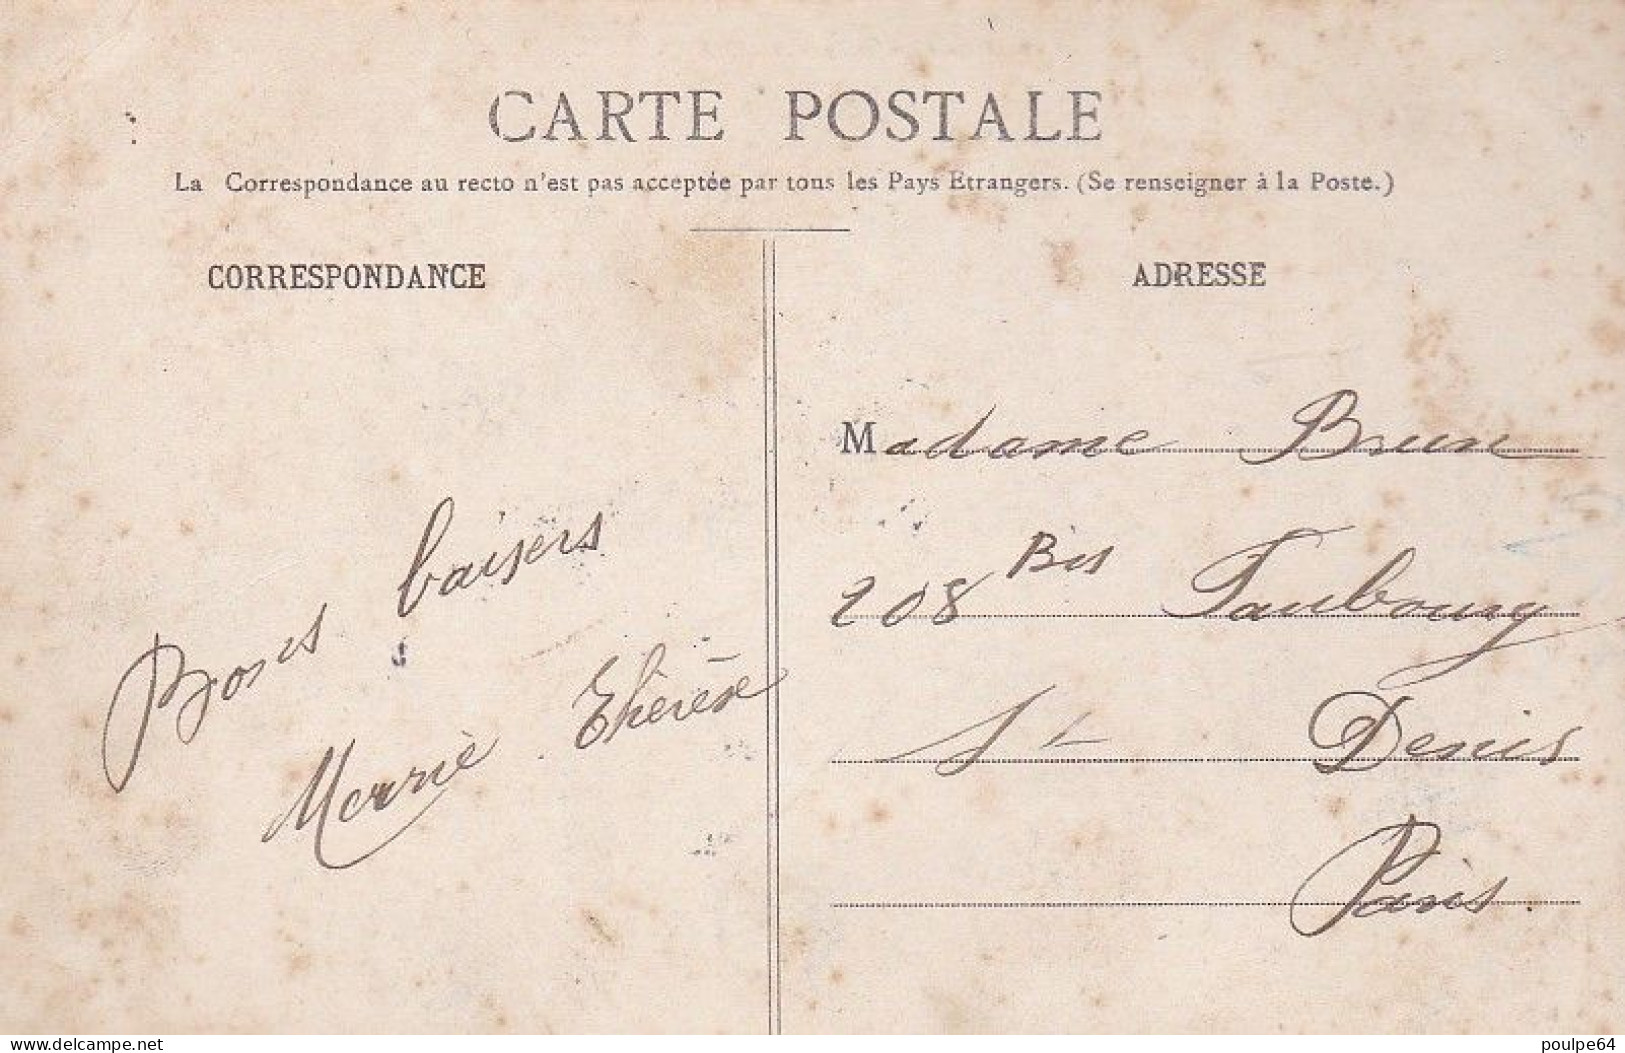 CARTE POSTALE
La Correspondance au recto n'est pas acceptée par tous les Pays Etrangers. (Se renseigner à la Poste.)
CORRESPONDANCE
Bons baisers
Marie Thérèse
ADRESSE
Madame Brun
208 Bis Faubourg
St Denis
Paris.
delcampe.net
poulpe64